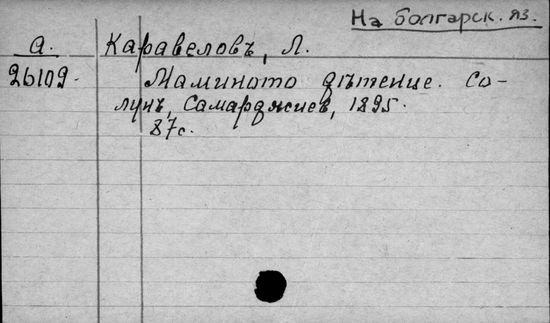 На болгарск. яз.
а. Каравеловъ, Л.
26109. Маминото дѣтенце. Со-
лунъ, Самарджиев, 1895.
87с.